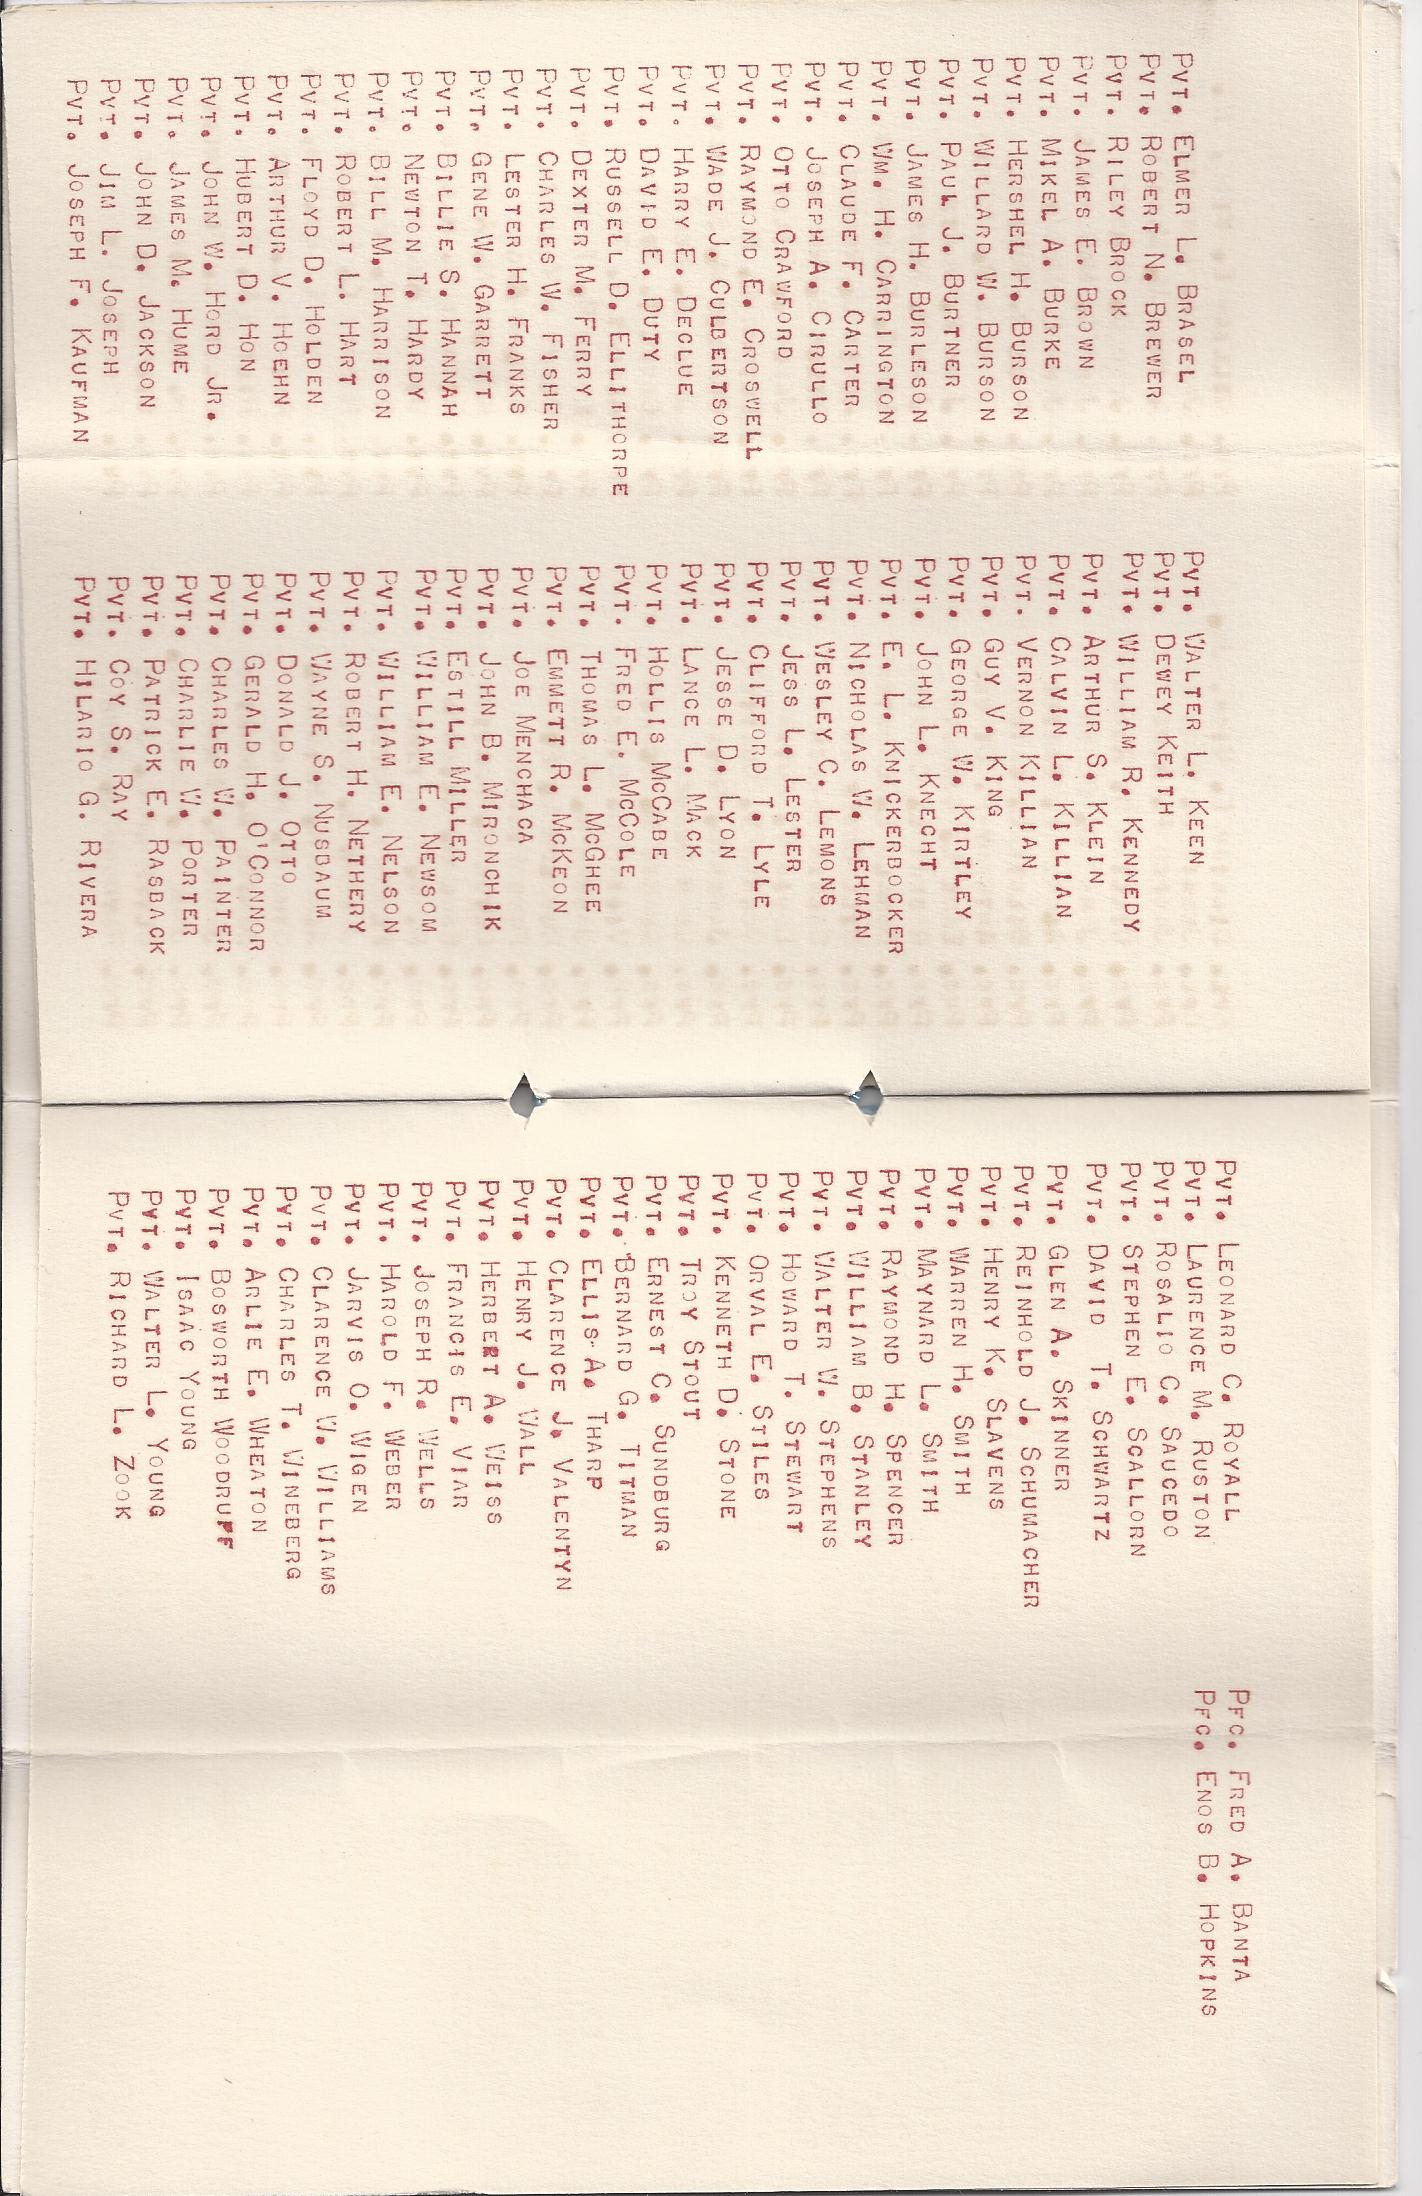 Pvt. Elmer L. Brasel
Pvt. Robert N. Brewer
Pvt. Riley Brock
Pvt. James E. Brown
Pvt. Mikel A. Burke
Pvt. Hershel H. Burson
Pvt. Willard W. Burson
Pvt. Paul J. Burtner
Pvt. James H. Burleson
Pvt. Wm. H. Carrington
Pvt. Claude F. Carter
Pvt. Joseph A. Cirullo
Pvt. Otto Crawford
Pvt. Raymond E. Croswell
Pvt. Wade J. Culbertson
Pvt. Harry E. Declue
Pvt. David E. Duty
Pvt. Russell D. Ellithorpe
Pvt. Dexter M. Ferry
Pvt. Charles W. Fisher
Pvt. Lester H. Franks
Pvt. Gene W. Garrett
Pvt. Billie S. Hannah
Pvt. Newton T. Hardy
Pvt. Bill M. Harrison
Pvt. Robert L. Hart
Pvt. Floyd D. Holden
Pvt. Arthur V. Hoehn
Pvt. Hubert D. Hon
Pvt. John W. Hord Jr.
Pvt. James M. Hume
Pvt. John D. Jackson
Pvt. Jim L. Joseph
Pvt. Joseph F. Kaufman
Pvt. Walter L. Keen
Pvt. Dewey Keith
Pvt. William R. Kennedy
Pvt. Arthur S. Klein
Pvt. Calvin L. Killian
Pvt. Vernon Killian
Pvt. Guy V. King
Pvt. George W. Kirtley
Pvt. John L. Knecht
Pvt. E. L. Knickerbocker
Pvt. Nicholas W. Lehman
Pvt. Wesley C. Lemons
Pvt. Jess L. Lester
Pvt. Clifford T. Lyle
Pvt. Jesse D. Lyon
Pvt. Lance L. Mack
Pvt. Hollis McCabe
Pvt. Fred E. McCole
Pvt. Thomas L. McGhee
Pvt. Emmett R. McKeon
Pvt. Joe Menchaca
Pvt. John B. Mironchik
Pvt. Estill Miller
Pvt. William E. Newsom
Pvt. William E. Nelson
Pvt. Robert H. Nethery
Pvt. Wayne S. Nusbaum
Pvt. Donald J. Otto
Pvt. Gerald H. O'Connor
Pvt. Charles W. Painter
Pvt. Charlie W. Porter
Pvt. Patrick E. Rasback
Pvt. Coy S. Ray
Pvt. Hilario G. Rivera
Pvt. Leonard C. Royall
Pvt. Laurence M. Ruston
Pvt. Rosalio C. Saucedo
Pvt. Stephen E. Scallorn
Pvt. David T. Schwartz
Pvt. Glen A. Skinner
Pvt. Reinhold J. Schumacher
Pvt. Henry K. Slavens
Pvt. Warren H. Smith
Pvt. Maynard L. Smith
Pvt. Raymond H. Spencer
Pvt. William B. Stanley
Pvt. Walter W. Stephens
Pvt. Howard T. Stewart
Pvt. Orval E. Stiles
Pvt. Kenneth D. Stone
Pvt. Troy Stout
Pvt. Ernest C. Sundburg
Pvt. Bernard G. Titman
Pvt. Ellis A. Tharp
Pvt. Clarence J. Valentyn
Pvt. Henry J. Wall
Pvt. Herbert A. Weiss
Pvt. Francis E. Viar
Pvt. Joseph R. Wells
Pvt. Harold F. Weber
Pvt. Jarvis O. Wigen
Pvt. Clarence W. Williams
Pvt. Charles T. Wineberg
Pvt. Arlie E. Wheaton
Pvt. Bosworth Woodruff
Pvt. Isaac Young
Pvt. Walter L. Young
Pvt. Richard L. Zook
Pfc. Fred A. Banta
Pfc. Enos B. Hopkins